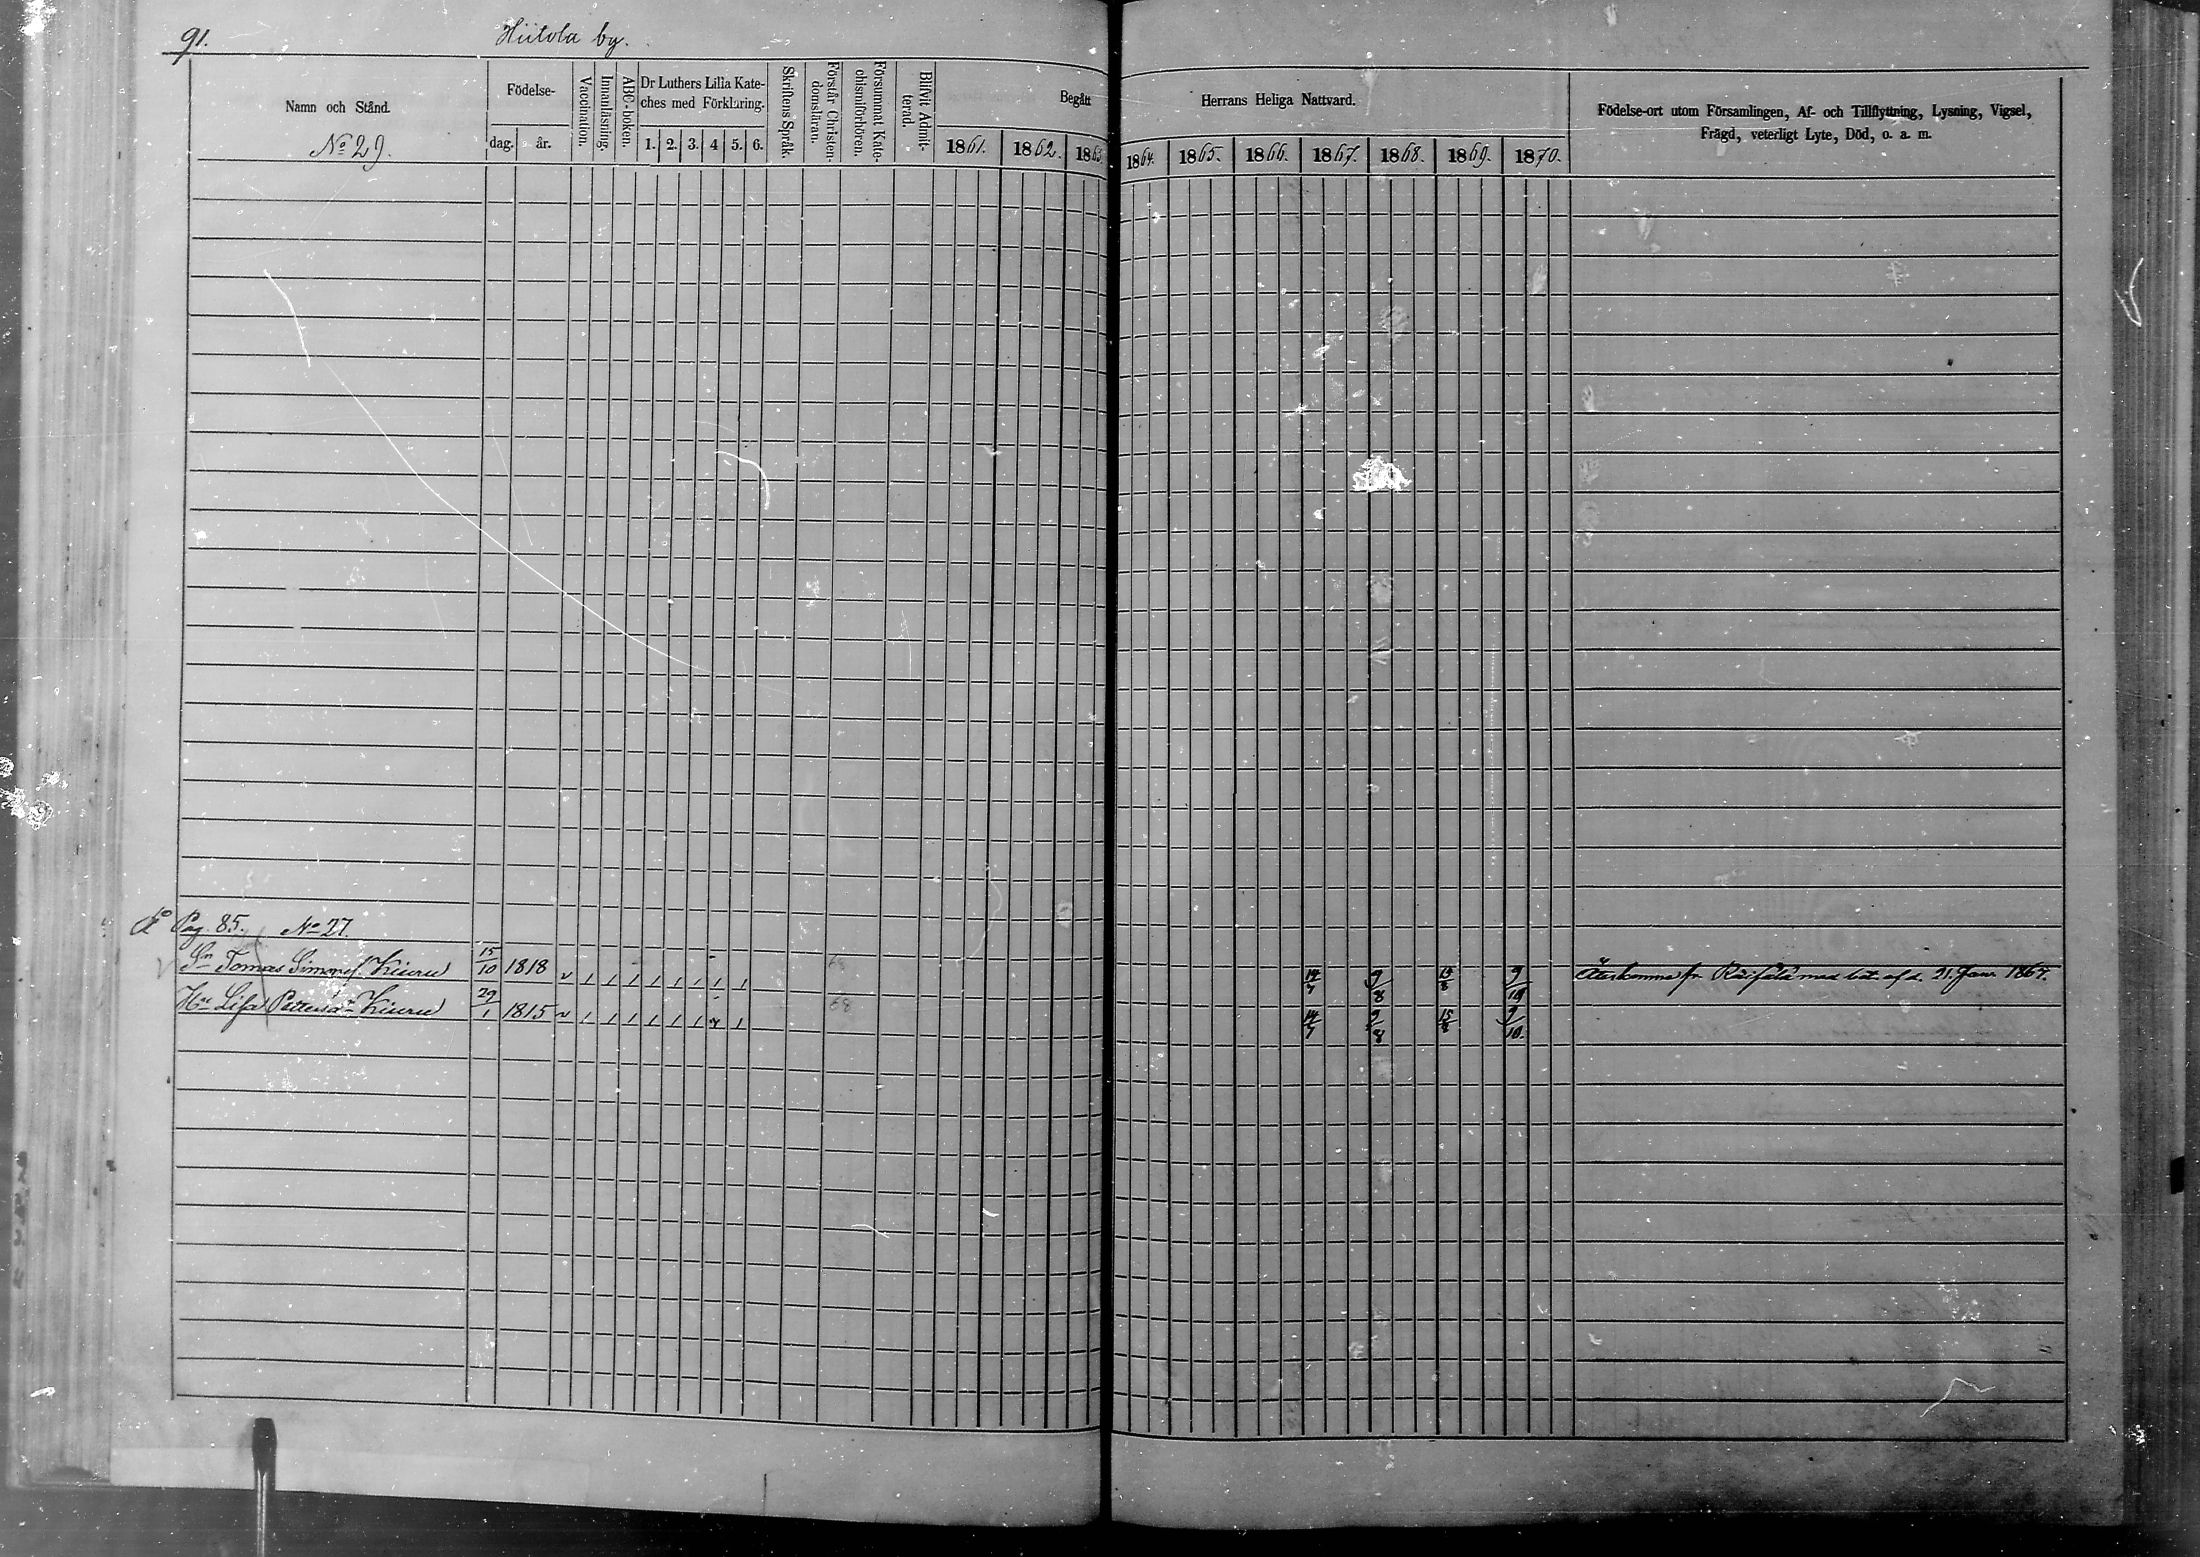 91. Hiitola by.
Namn och Stånd.
No 29.
Födelse-
dag. år.
Vaccination.
Innanläsning.
ABC-boken.
Dr Luthers Lilla Kate-
ches med Förklaring.
1. 2. 3. 4 5. 6.
Skriftens Språk.
Förstår Christen-
domsläran.
Försummat Kate-
chismiförhören.
Blifvit Admit-
terad.
Begått
1861. 1862. 1863.
Herrans Heliga Nattvard.
1864. 1865. 1866. 1867. 1868. 1869. 1870.
Födelse-ort utom Församlingen, Af- och Tillflyttning, Lysning, Vigsel,
Frägd, veterligt Lyte, Död, o. a. m.
Pag. 85. No 27.
Sn Tomas Simonss. Kiuru 15/10 1818 v 1 1 1 1 1 1 1 1 68 14/7 9/8 15/8 9/10 Återkomne fr. Räisälä med bet. af d. 21. Janr 1867.
Hu Lisa Pettersdr Kiuru 29/1 1815 v 1 1 1 1 1 1 1 68 14/7 9/8 15/8 9/10.